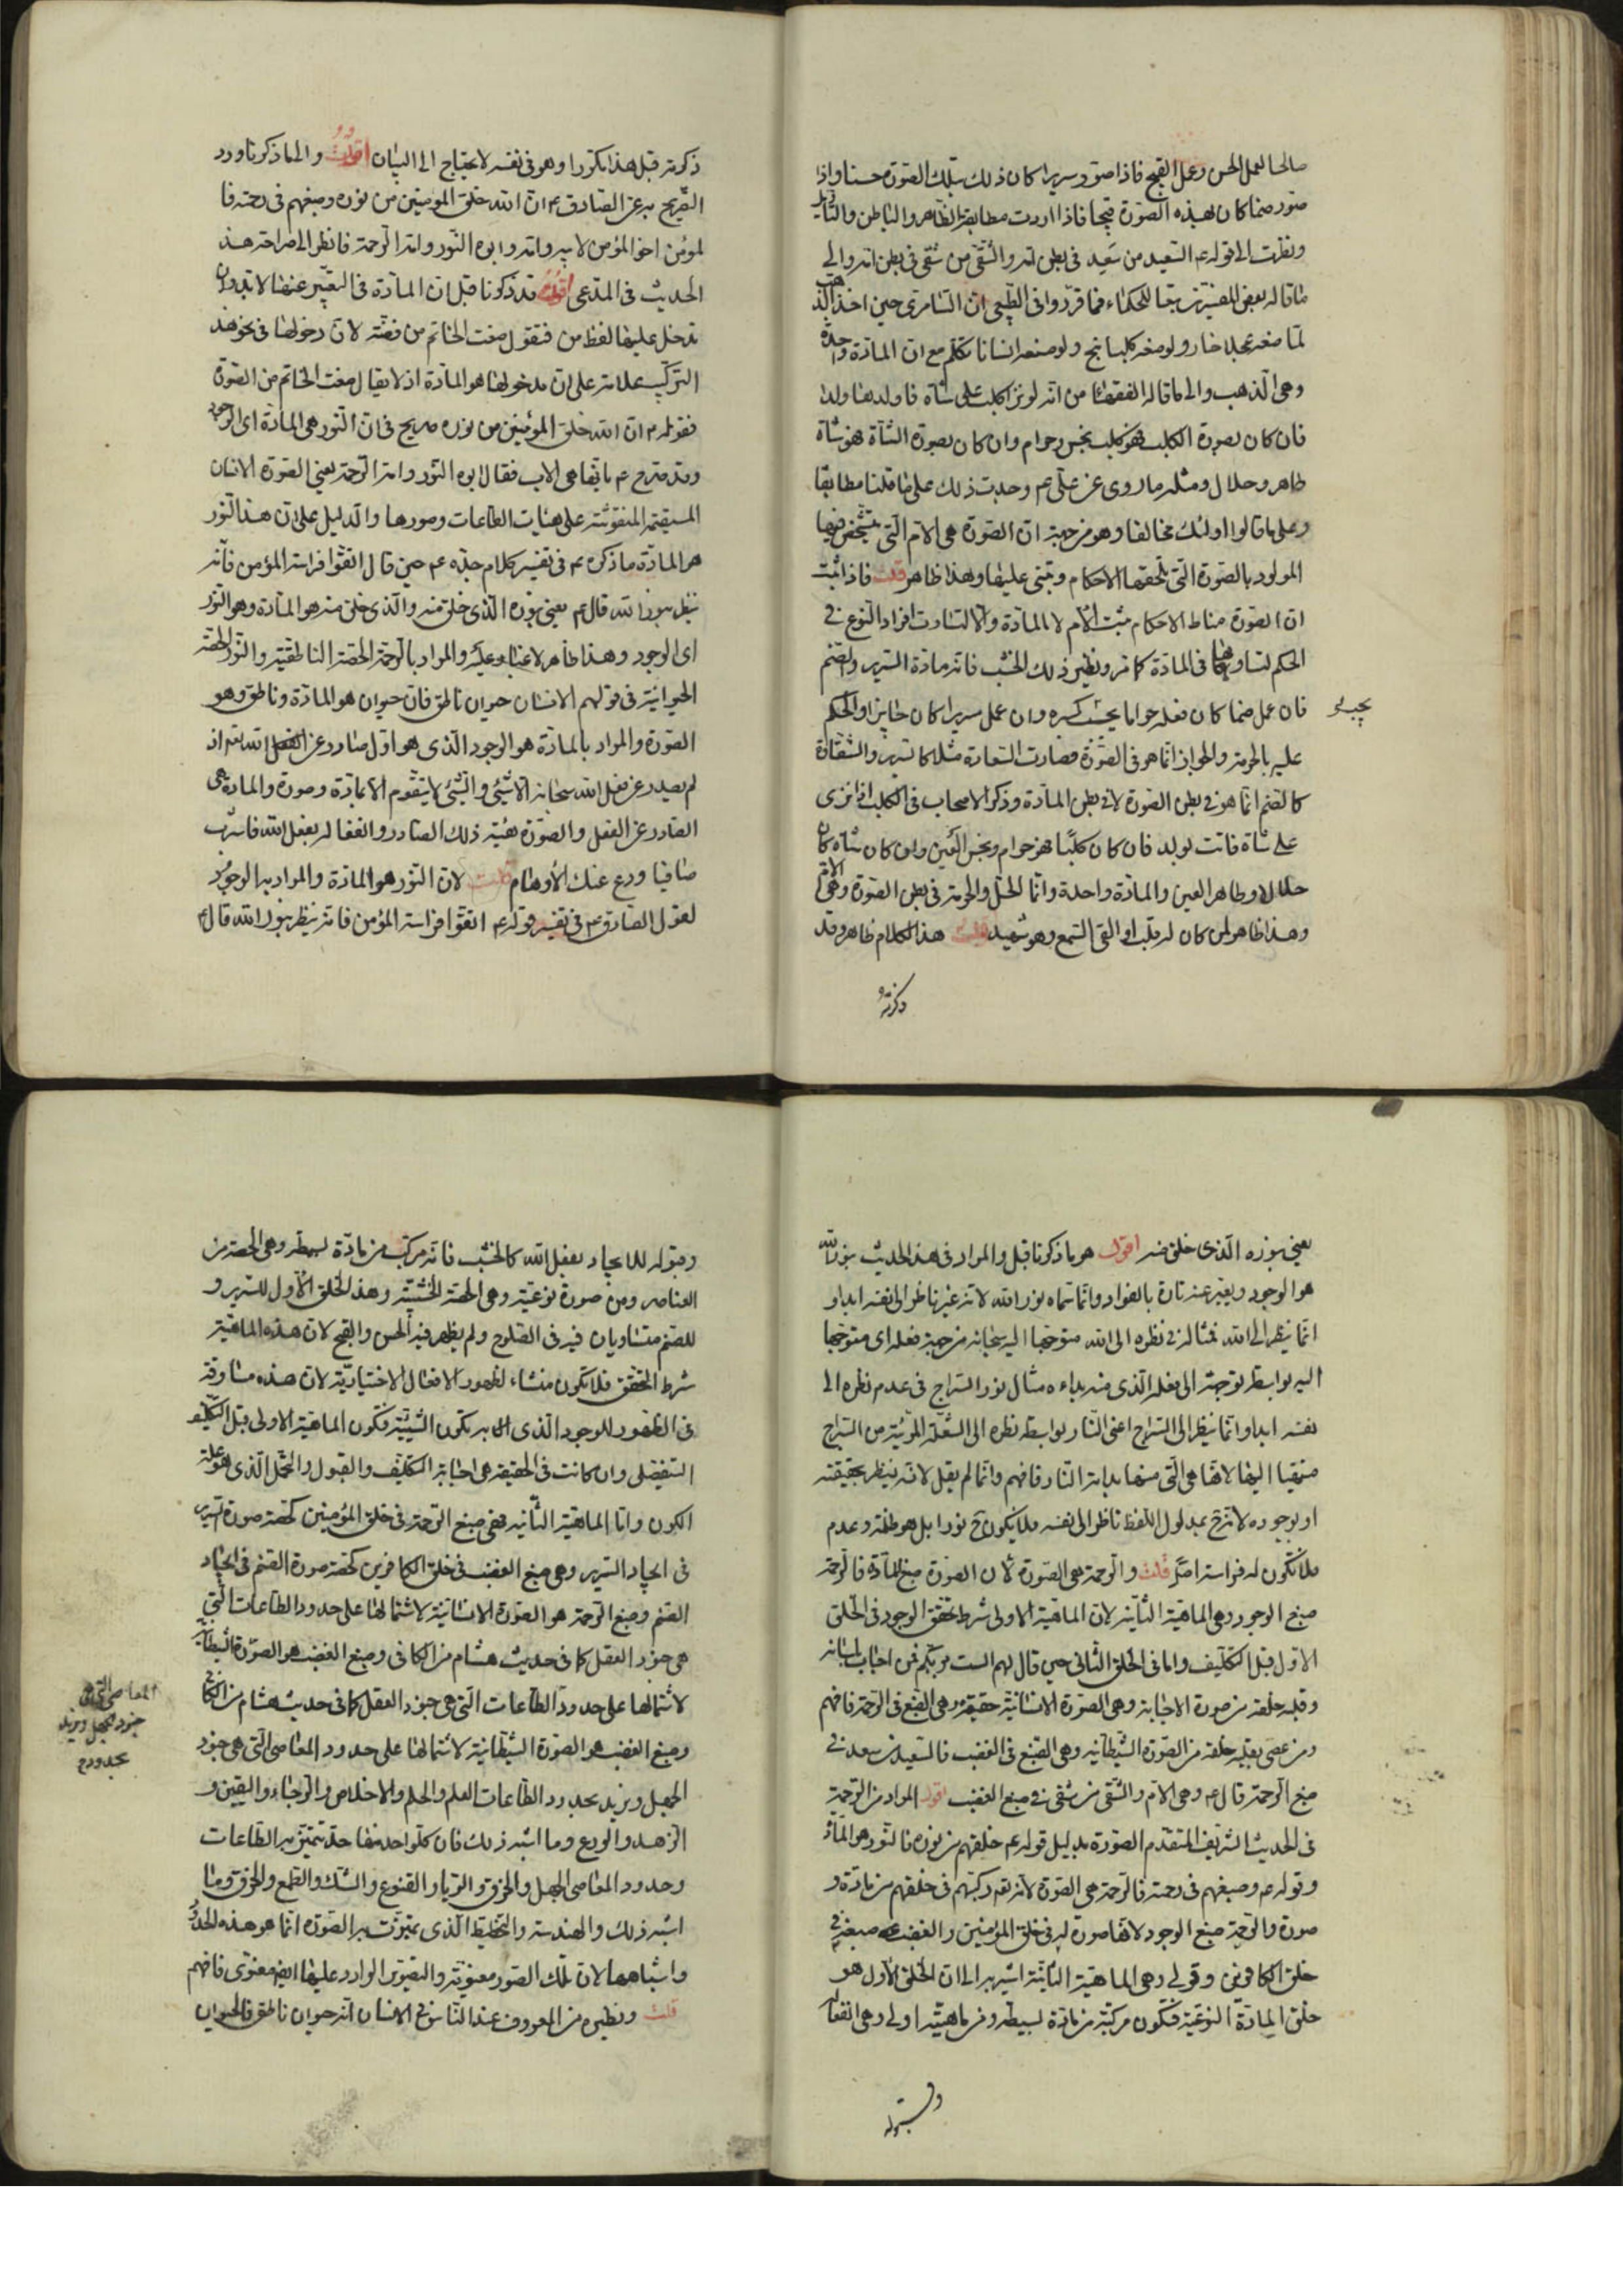 صالحا لعمل الحسن وعمل القبيح فاذا صور سريرا كان ذلك بتلك الصورة حسنا واذا
صور صنما كان بهذه الصورة قبيحا فاذا اردت مطابقة الظاهر والباطن والتأويل
ونظرت الى قوله ع السعيد من سعيد فى بطن امه والشقى من شقى فى بطن امه والى
ما قاله بعض المفسرين تبعا للحكماء فما قرروا فى الطبيعى ان السامرى حين اخذ الذهب
لما صنعه عجلا خار ولو صنعه كلبا نبح ولو صنعه انسانا تكلم مع ان المادة واحدة
وهى الذهب والى ما قاله الفقهاء من انه لو نزا كلب على شاة فاولدها ولدا
فان كان بصورة الكلب فهو كلب نجس وحرام وان كان بصورة الشاة فهو شاة
طاهر وحلال ومثله ما روى عن على ع وجدت ذلك على ما قلنا مطابقا
وعلى ما قالوا اولئك مخالفا وهو من جهة ان الصورة هى الام التى يتشخص فيها
المولود بالصورة التى تلحقها الاحكام وتبنى عليها وهذا ظاهر قلت فاذا ثبت
ان الصورة مناط الاحكام ثبت الام لا المادة والا لتساوت افراد النوع فى
الحكم لتساويها فى المادة كما مر ونظير ذلك الخشب فانه مادة السرير والصنم
فان عمل صنما كان فعله حراما يجب كسره وان عمل سريرا كان جايزا والحكم
يجب
عليه بالحرمة والجواز انما هو فى الصورة فصارت السعادة مثلا كالسرير والشقاوة
كالصنم انما هو فى بطن الصورة لا فى بطن المادة وذكر الاصحاب فى الكلب اذا نزى
على شاة فاتت بولد فان كان كلبا فهو حرام ونجس العين وان كان شاة كان
حلالا وطاهر العين والمادة واحدة وانما الحل والحرمة فى بطن الصورة وهى الام
وهذا ظاهر لمن كان له قلب او القى السمع وهو شهيد قلت هذا الكلام ظاهر وقد
ذكرته
ذكرته قبل هذا مكررا وهو فى نفسه لا يحتاج الى البيان والى ما ذكرنا ورد
التصريح به عن الصادق ع ان الله خلق المومنين من نوره وصبغهم فى رحمته فا
لمؤمن اخو المؤمن لابيه وامه وابوه النور وامه الرحمة فانظر الى صراحة هذا
الحديث فى المدعى اقول قد ذكرنا قبل ان المادة فى التعبير عنها لا بد وان
تدخل عليها لفظ من فتقول صغت الخاتم من فضة لان دخولها فى نحو هذا
التركيب علامة على ان مدخولها هو المادة اذ لا يقال صغت الخاتم من الصورة
فقوله ع ان الله خلق المؤمنين من نوره صريح فى ان النور هى المادة اى الوجود
وقد صرح ع بانها هى الاب فقال ابوه النور وامه الرحمة يعنى الصورة الانسان
المستقيمة على هيئات الطاعات وصورها والدليل على ان هذا النور
هو المادة ما ذكره ع فى تفسير كلام جده ع حين قال اتقوا فراسة المؤمن فانه
ينظر بنور الله قال ع يعنى بنوره الذى خلق منه والذى خلق منه هو المادة وهو النور
اى الوجود وهذا ظاهر لا غبار عليه والمراد بالرحمة الحصة الناطقية والنور الحصة
الحيوانية فى قولهم الانسان حيوان ناطق فان حيوان هو المادة وناطق وهو
الصورة والمراد بالمادة هو الوجود الذى هو اول صادر عن الفعل الله تعم اذ
لم يصدر عن فعل الله سبحانه الا شئ والشئ لا يتقوم الا بمادة وصورة والمادة هى
الصادر عن الفعل والصورة هيئة ذلك الصادر وانفعاله بفعل الله فاشرب
صافيا ودع عنك الاوهام قلت لان النور هو المادة والمراد به الوجود
لقول الصادق ع فى تفسير قوله ع اتقوا فراسة المؤمن فانه ينظر بنور الله قال ع
يعنى بنوره الذى خلق منه اقول هو ما ذكرنا قبل والمراد فى هذا الحديث بنور الله
هو الوجود ويعبر عنه تارة بالفؤاد وانما سماه نور الله لانه غير ناظر الى نفسه ابدا و
انما ينظر الى الله فمثاله فى نظره الى الله متوجها اليه سبحانه من جهة فعله اى متوجها
اليه بواسطة توجهه الى فعله الذى منه بداءه مثال نور السراج فى عدم نظره الى
نفسه ابدا وانما ينظر الى السراج اعنى النار بواسطة نظره الى الشعلة المرئية من السراج
منتهيا اليها لانها هى التى منها بداية النار فافهم وانما لم يقل لانه ينظر بحقيقته
او بوجوده لانه ح بمدلول اللفظ ناظر الى نفسه فلا يكون ح نورا بل هو ظلمة وعدم
فلا تكون له فراسة اصلا قلت والرحمة هى الصورة لان الصورة صبغ المادة فالرحمة
صبغ الوجود وهى الماهية الثانية لان الماهية الاولى شرط تحقق الوجود فى الخلق
الاول قبل التكليف واما فى الخلق الثانى حين قال لهم الست بربكم فمن اجاب بلسانه
وقلبه خلقه من صورة الاجابة وهى الصورة الانسانية حقيقة وهى الصبغ فى الرحمة فافهم
ومن عصى بقلبه خلقه من الصورة الشيطانيه وهى الصبغ فى الغضب فالسعيد من سعد فى
صبغ الرحمة قال ع وهى الام والشقى من شقى فى صبغ الغضب اقول المراد من الرحمة
فى الحديث الشريف المتقدم الصورة بدليل قوله ع خلقهم من نوره فالنور هو المادة
وقوله ع وصبغهم فى رحمته فالرحمة هى الصورة لانه تعم ركبهم فى خلقهم من مادة و
صورة والرحمة صبغ الوجود لانها صورة له فى خلق المؤمنين والغضب صبغة فى
خلق الكافرين وقولى وهى الماهية الثانية اشير به الى ان الخلق الاول هو
خلق المادة النوعية فتكون مركبة من مادة بسيطة ومن ماهية اولى وهى انفعاله
وقبوله
وقبوله للايجاد بفعل الله كالخشب فانه مركب من مادة بسيطه وهى الحصة من
العناصر ومن صورة نوعية وهى الحصة الخشبية وهذا الخلق الاول للسرير و
للصنم متساويان فيه فى الصلوح ولم يظهر فيه الحسن والقبح لان هذه الماهية
شرط التحقق فلا تكون منشاء لظهور الافعال الاختيارية لان هذه مساوقة
فى الظهور للوجود الذى به تكون الشيئية فتكون الماهية الاولى قبل التكليف
التفصيلى وان كانت فى الحقيقة هى اجابة التكليف والقبول والتحمل الذى هو علة
الكون واما الماهية الثانيه فهى صبغ الرحمة فى خلق المؤمنين كحصة صورة السرير
فى ايجاد السرير وهى صبغ الغضب فى خلق الكافرين كحصة صورة الصنم فى ايجاد
الصنم وصبغ الرحمة هو الصورة الانسانية لاشتمالها على حدود الطاعات التى
هى جنود العقل كما فى حديث هشام من الكافى وصبغ الغضب هو الصورة الشيطانية
لاشتمالها على حدود الطاعات التى هى جنود العقل كما فى حديث هشام من الكافى
المعاصى التى هى
جنود الجهل ونريد
بحدود
وصبغ الغضب هو الصورة الشيطانية لاشتمالها على حدود المعاصى التى هى جنود
الجهل ونريد بحدود الطاعات العلم والحلم والاخلاص والرجاء واليقين و
الزهد والورع وما اشبه ذلك فان كل واحد منها حد تتميز به الطاعات
وحدود المعاصى الجهل والخرق والريا والقنوع والشك والطمع والخرق وما
اشبه ذلك والهندسة والتخطيط الذى تميزت به الصورة انما هو هذه الحدود
واشباهها لان تلك الصور معنوية والتصوير الوارد عليها ايضا معنوى فافهم
قلت ونظيره من المعروف عند الناس فى الانسان انه حيوان ناطق فالحيوان